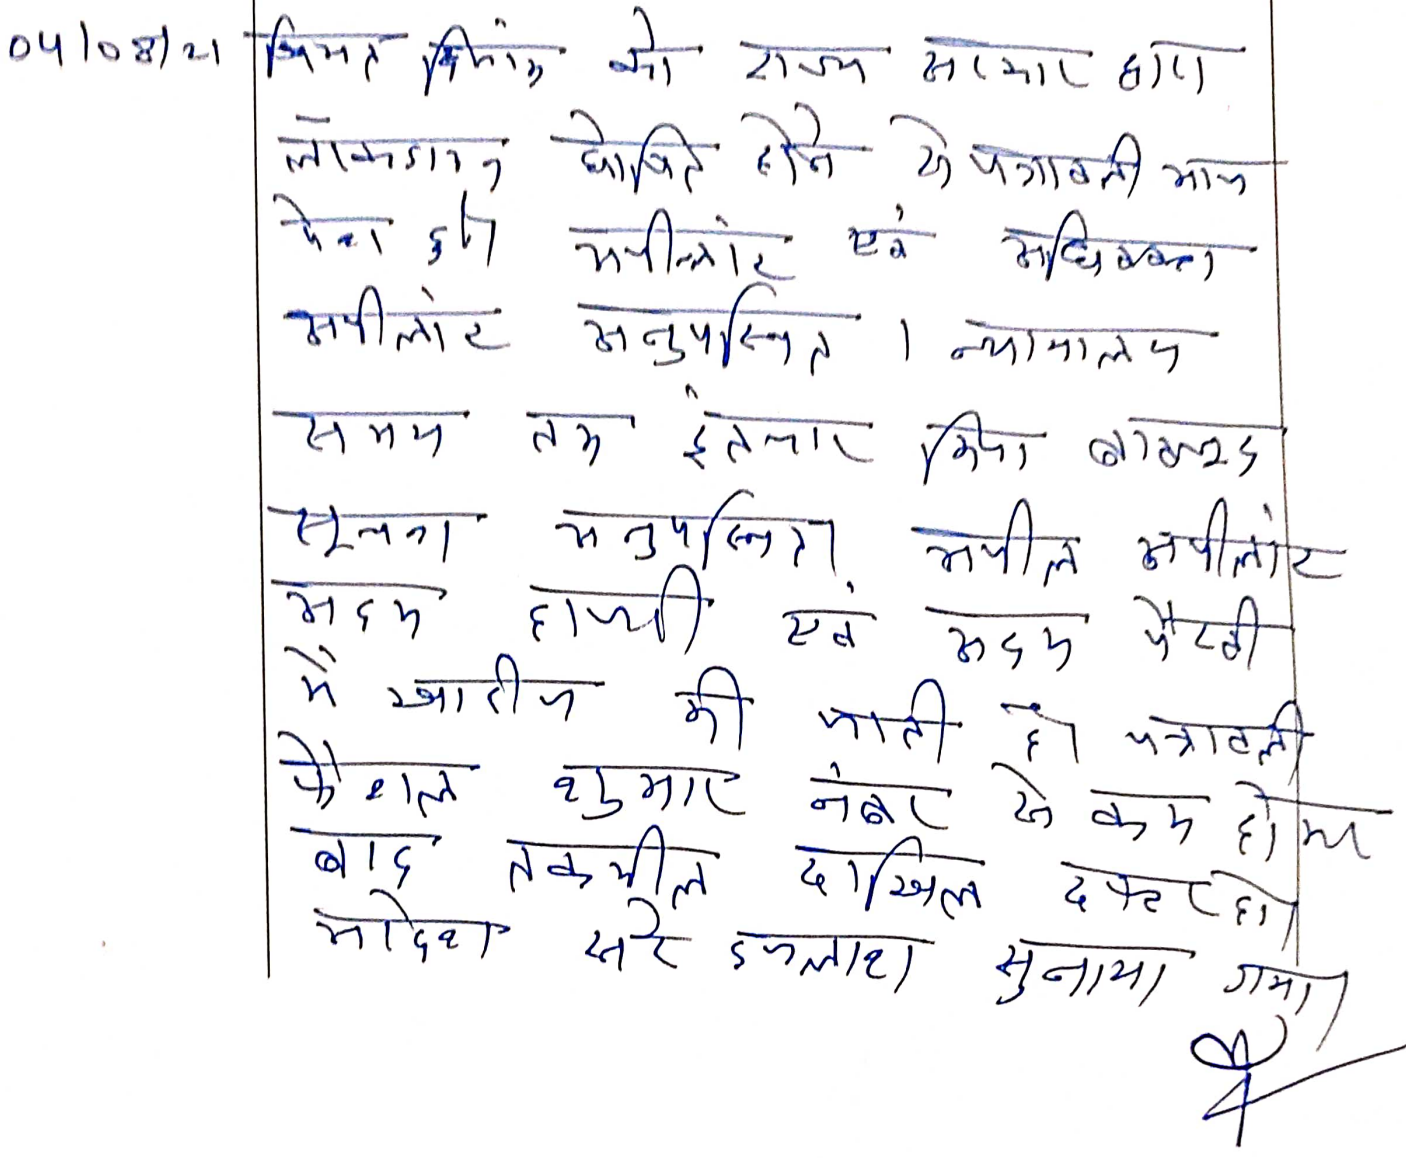 04/08/21 नियत दिनांक को राज्य सरकार द्वारा
लॉकडाउन घोषित होने से पत्रावली आज
पेश हुई। अपीलांट एवं अधिवक्ता
अपीलांट अनुपस्थित । न्यायालय
समय तक इंतजार किया बावजूद
सूचना अनुपस्थित। अपील अपीलांट
अदम हाजरी एवं अदम पैरवी
में खारीज की जाती है। पत्रावली
फैशल शुमार नंबर से कम होकर
बाद तकमील दाखिल दफ्तर हो।
आदेश सरे इजलाश सुनाया गया।